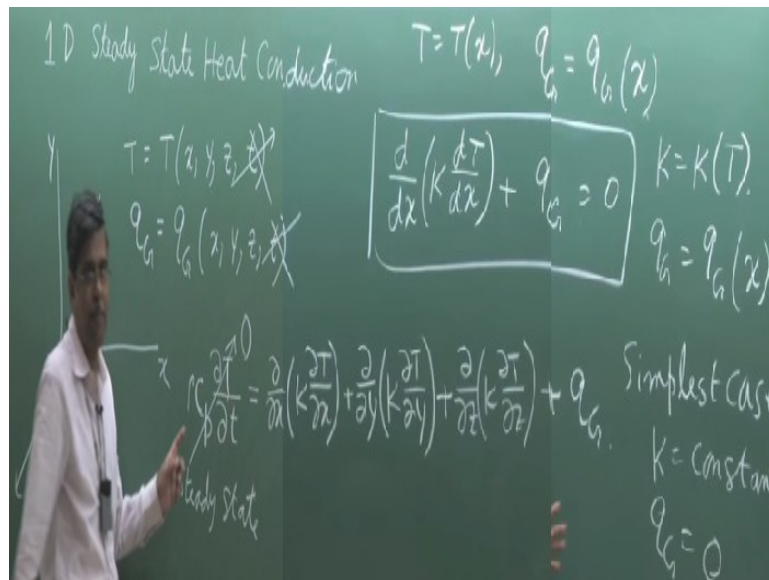 1D Steady State Heat Conduction
T = T(x), q_G = q_G(x)
y
T = T(x, y, z, t)
q_G = q_G(x, y, z, t)
d/dx (K dT/dx) + q_G = 0
K = K(T).
q_G = q_G(x)
x
ρC_p ∂T/∂t → 0 = ∂/∂x (K ∂T/∂x) + ∂/∂y (K ∂T/∂y) + ∂/∂z (K ∂T/∂z) + q_G.
Steady State
Simplest Cas
K = Constan
q_G = 0